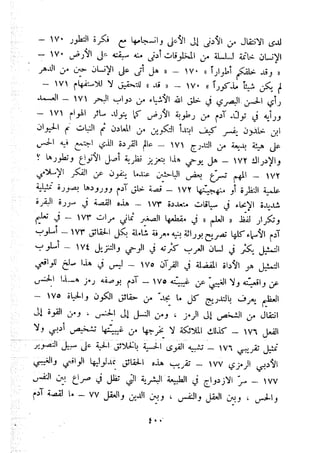 لدى الانتقال من الأدنى إلى الأعلى وانسجامها مع فكرة التطور ١٧٠ –
الإنسان خاتمة لسلسلة من المخلوقات أدنى منه سبقته على الأرض ١٧٠ –
« وقد خلقكم أطواراً » ١٧٠ – « هل أتى على الإنسان حين من الدهر
لم يكن شيئاً مذكورا » ١٧٠ – « قد » للتحقيق لا للاستفهام ١٧١ –
رأي الحسن البصري في خلق الله الأشياء من دواب البحر ١٧١ – المسعد
ورأيه في تولد آدم من رطوبة الأرض كما يتولد سائر الهوام ١٧١ –
ابن خلدون يفسر كيف ابتدأ التكوين من المعادن ثم النبات ثم الحيوان
على هيئة بديعة من التدرج ١٧١ – عالم القردة الذي اجتمع فيه الحس
والإدراك ١٧٢ – هل يوحي هذا بتعزيز نظرية أصل الأنواع وتطورها ؟
١٧٢ – المهم تسرع بعض الباحثين عندما ينفون عن الفكر الإسلامي
علمية النظرة أو منهجيتها ١٧٢ – قصة خلق آدم وورودها بصورة تمثيلية
شديدة الإيحاء في سياقات متعددة ١٧٣ – هذه القصة في سورة البقرة
وتكرار لفظ « العلم » في مقطعها الصغير ثماني مرات ١٧٣ – في تعليم
آدم الأسماء كلها تصريح بوراثة بنيه معرفة شاملة بكل الحقائق ١٧٣ – أسلوب
التمثيل يكثر في لسان العرب كثرته في الوحي والتنزيل ١٧٤ – أسلوب
التمثيل هو الأداة المفضلة في القرآن ١٧٥ – ليس في هذا سلخ للواقعي
عن واقعيته ولا الغيبي عن غيبيته ١٧٥ – آدم بوصفه رمز هذا الجنس
العظيم يعرف بالتدريج كل ما يجد من حقائق الكون والحياة ١٧٥ –
انتقال من الشخص إلى الرمز ، ومن النسل إلى الجنس ، ومن القوة إلى
الفعل ١٧٦ – كذلك الملائكة لا يخرجها من غيبيتها تشخيص أدبي ولا
تمثيل تقريبي ١٧٦ – تشبيه القوى الحسية بالخلائق الحية على سبيل التصوير
الأدبي الرمزي ١٧٧ – تقريب هذه الحقائق بمدلوليها الواقعي والغيبي
١٧٧ – سر الازدواج في الطبيعة البشرية التي تظل في صراع بين النفس
والحس ، وبين العقل والنفس ، وبين الدين والعقل ٧٧ – ما لقصة آدم
٤٠٠